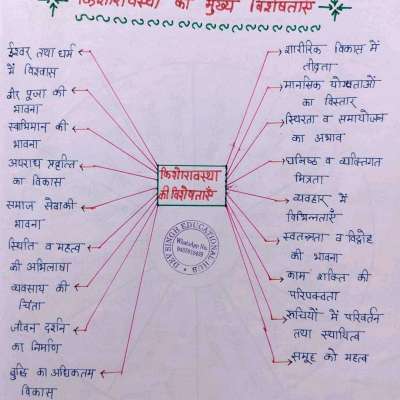 किशोरावस्था की मुख्य विशेषताएँ
ईश्वर तथा धर्म
में विश्वास
वीर पूजा की
भावना
स्वाभिमान की
भावना
अपराध प्रवृत्ति
का विकास
समाज सेवाकी
भावना
स्थिति व महत्व
की अभिलाषा
व्यवसाय की
चिंता
जीवन दर्शन
का निर्माण
बुद्धि का अधिकतम
विकास
किशोरावस्था
की विशेषताएँ
DEV SINGH EDUCATIONAL HUB
WhatsApp No.
शारीरिक विकास में
तीव्रता
मानसिक योग्यताओं
का विस्तार
स्थिरता व समायोजन
का अभाव
घनिष्ठ व व्यक्तिगत
मित्रता
व्यवहार में
विभिन्नताएँ
स्वतन्त्रता व विद्रोह
की भावना
काम शक्ति की
परिपक्वता
रूचियों में परिवर्तन
तथा स्थायित्व
समूह को महत्व